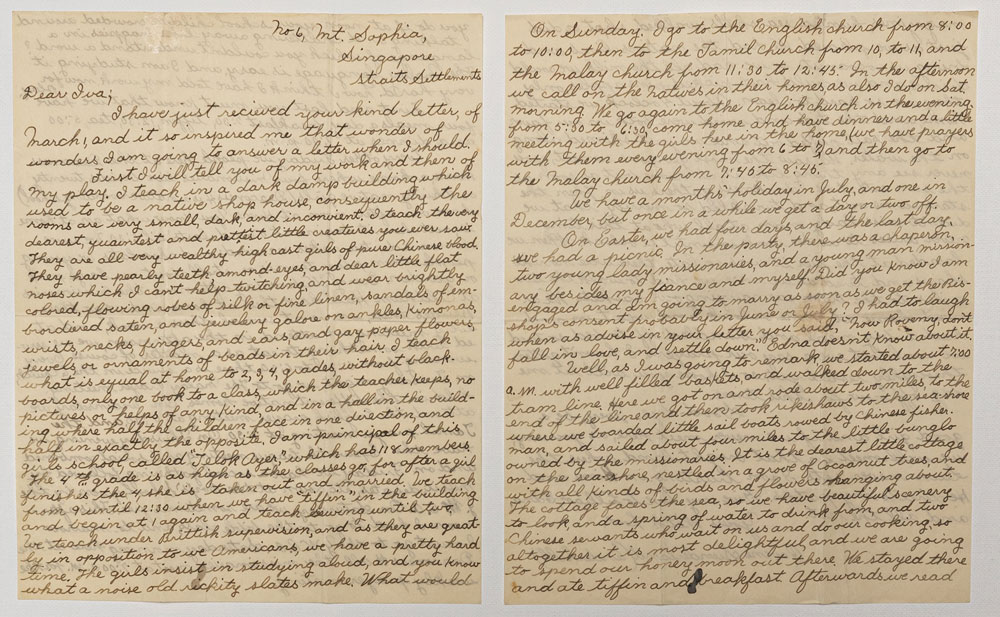 No 6, Mt. Sophia,
Singapore
Straits Settlements
Dear Iva;
I have just recived your kind letter, of
March, and it so inspired me that wonder of
wonders I am going to answer a letter when I should.
First I will tell you of my work and then of
my play. I teach in a dark damp building which
used to be a native shop house, consequently the
rooms are very small, dark, and inconvient. I teach the very
dearest, quaintest and prettist little creatures you ever saw.
They are all very wealthy high cast girls of pure Chinese blood.
They have pearly teeth amond-eyes, and dear little flat
noses which I can't help twitching, and wear brightly
colored, flowing robes of silk or fine linen, sandals of em-
biordired saten, and jewelery galore on ankles, Kimonas,
wrists, necks, fingers, and ears, and gay paper flowers,
jewels, or ornaments of beads in their hair. I teach
what is equal at home to 2, 3, 4, grades, without black-
boards, only one book to a class, which the teacher keeps, no
pictures, or helps of any kind, and in a hall in the build-
ing where half the children face in one direction, and
half in exactly the opposite. I am principal of this
girls school, called "Telok Ayer," which has 118 members.
The 4th grade is as high as the classes go, for after a girl
finishes the 4, she is taken out and married. We teach
from 9 until 12:30 when we have "tiffin" in the building
and begin at 1 again and teach sewing until two.
We teach under Brittish supervision, and as they are great-
ly in opposition to we Americans, we have a pretty hard
time. The girls insist in studying aloud, and you know
what a noise old rickity slates make. What would
On Sunday, I go to the English church from 8:00
to 10:00, then to the Tamil church from 10, to 11, and
the Malay church from 11:30 to 12:45. In the afternoon
we call on the natives in their homes, as also I do on Sat.
morning. We go again to the English church in the evening,
from 5:30 to 6:30, come home and have dinner and a little
meeting with the girls here in the home, (we have prayers
with them every evening from 6 to 7, and then go to
the Malay church from 7:45 to 8:45.
We have a months' holiday in July, and one in
December, but once in a while we get a day or two off.
On Easter, we had four days, and the last day,
we had a picnic. In the party, there was a chaperon,
two young lady missionaries, and a young man mission-
ary besides my fiance and myself. Did you know I am
engaged and am going to marry as soon as we get the Bis-
shop's consent probably in June or July? I had to laugh
when as advise in your letter you said, "now Roveny, don't
fall in love, and settle down." Edna doesn't know about it.
Well, as I was going to remark, we started about 7:00
a.m. with well filled baskets, and walked down to the
tram line. Here we got on and rode about two miles, to the
end of the line and then took rikishaws to the sea-shore
where we boarded little sail boats rowed by Chinese fisher-
man, and sailed about four miles to the little bunglo
owned by the missionaries. It is the dearest little cottage
on the sea-shore, nestled in a grove of Cocoanut trees, and
with all kinds of birds and flowers hanging about.
The cottage faces the sea, so we have beautiful scenery
to look, and a spring of water to drink from, and two
Chinese servants who wait on us and do our cooking, so
altogether it is most delightful, and we are going
to spend our honey moon out there. We stayed there
and ate tiffin and breakfast. Afterwards we read